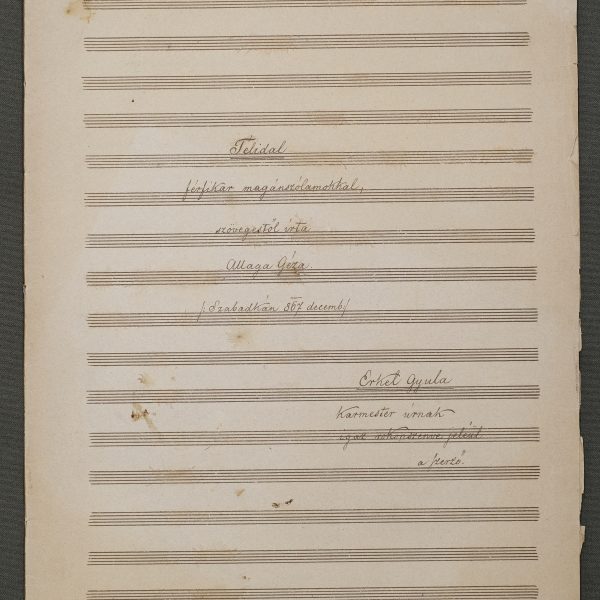 Télidal
férfikar magánszólamokkal,
szövegestől írta
Allaga Géza.
/: Szabadkán 867 decemb/
Erkel Gyula
Karmester úrnak
igaz rokonszenve jeléül
a szerző.